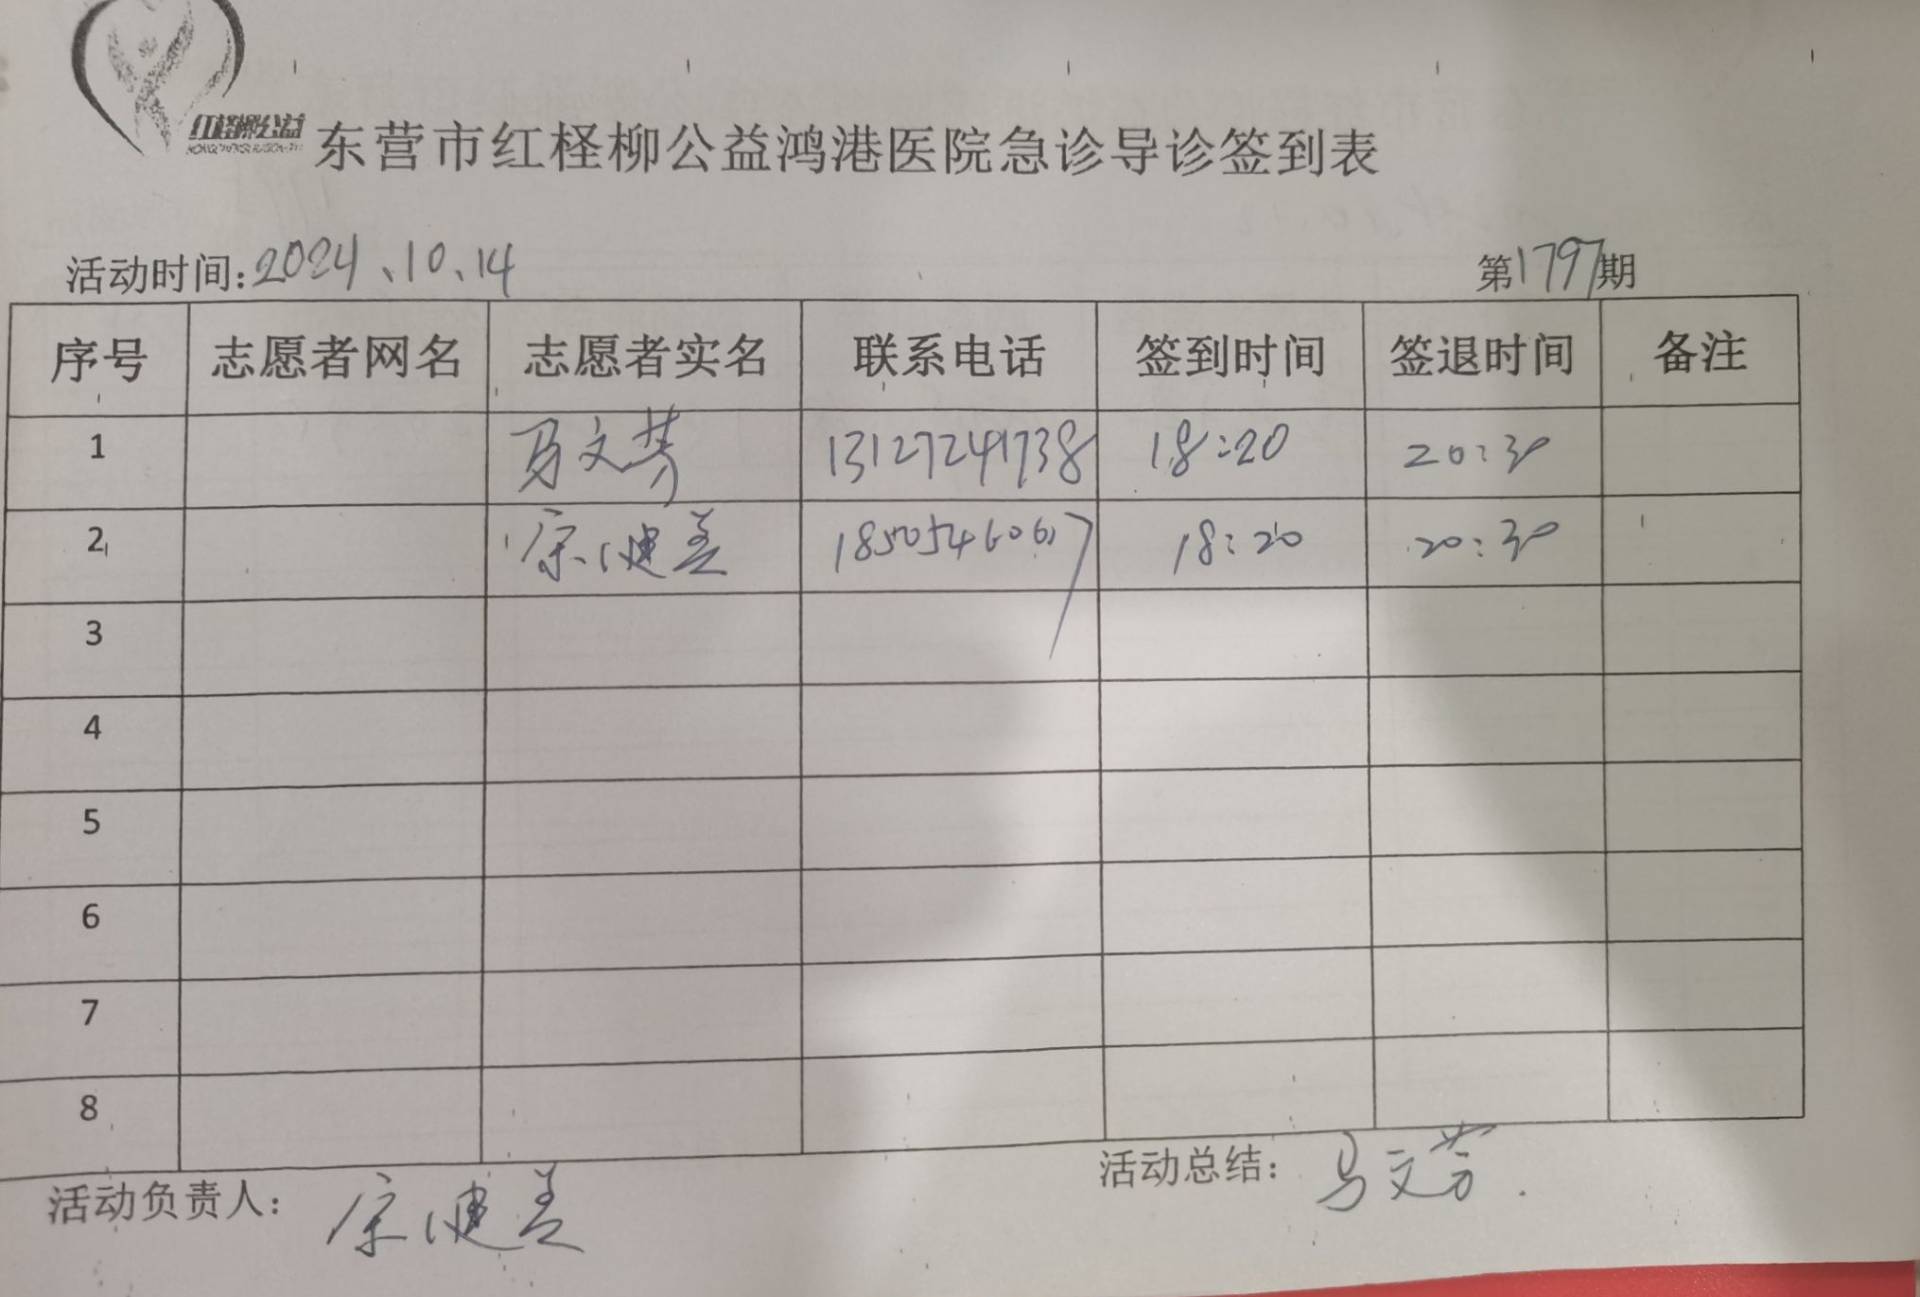 红柽柳公益
东营市红柽柳公益鸿港医院急诊导诊签到表
活动时间:2024、10、14 第1797期
序号 志愿者网名 志愿者实名 联系电话 签到时间 签退时间 备注
1 马文芳 13127241738 18:20 20:30
2 宗健美 18505460617 18:20 20:30
3
4
5
6
7
8
活动负责人: 宗健美 活动总结: 马文芳.